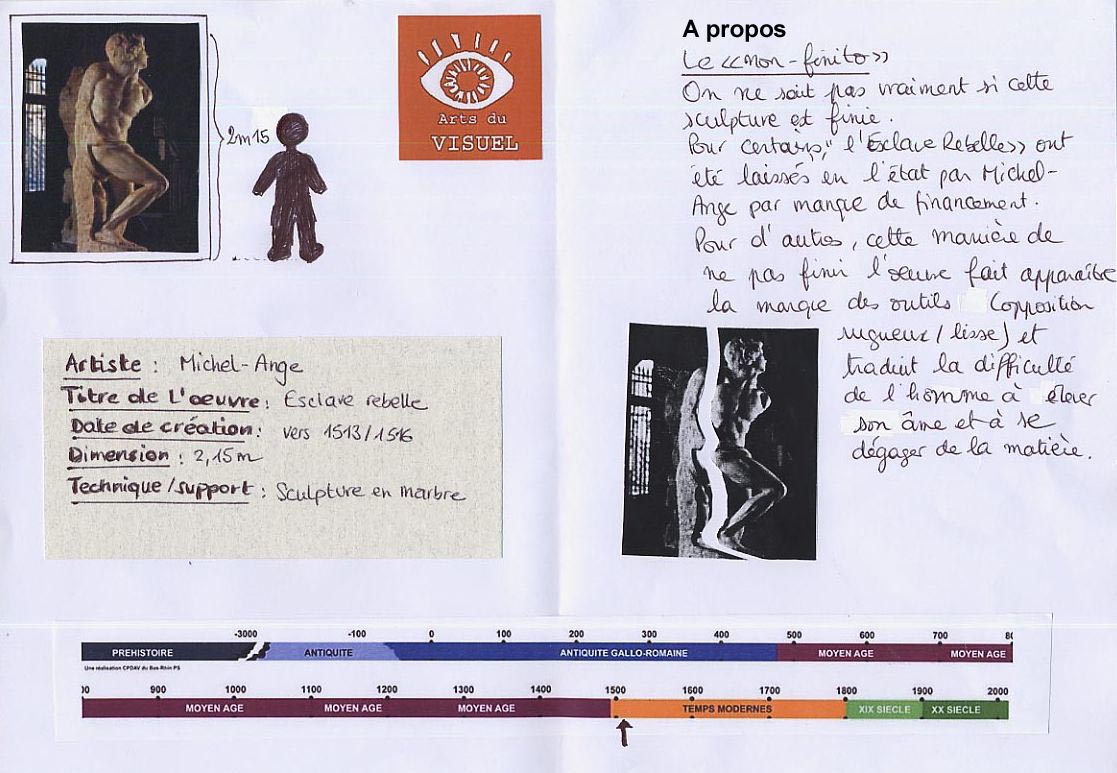 2m15
Arts du
VISUEL
Artiste : Michel-Ange
Titre de L'oeuvre : Esclave rebelle
Date de création : vers 1513/1516
Dimension : 2,15m
Technique/support : Sculpture en marbre
A propos
Le «non-finito»
On ne sait pas vraiment si cette
sculpture est finie.
Pour certains, " l'Esclave Rebelle» ont
été laissés en l'état par Michel-
Ange par manque de financement.
Pour d'autres, cette manière de
ne pas finir l'oeuvre fait apparaître
la marque des outils (opposition
rugueux / lisse) et
traduit la difficulté
de l'homme à élever
son âme et à se
dégager de la matière.
-3000 -100 0 100 200 300 400 500 600 700 80
PREHISTOIRE ANTIQUITE ANTIQUITE GALLO-ROMAINE MOYEN AGE MOYEN AGE
Une réalisation CPDAV du Bas-Rhin PS
00 900 1000 1100 1200 1300 1400 1500 1600 1700 1800 1900 2000
MOYEN AGE MOYEN AGE MOYEN AGE TEMPS MODERNES XIX SIECLE XX SIECLE